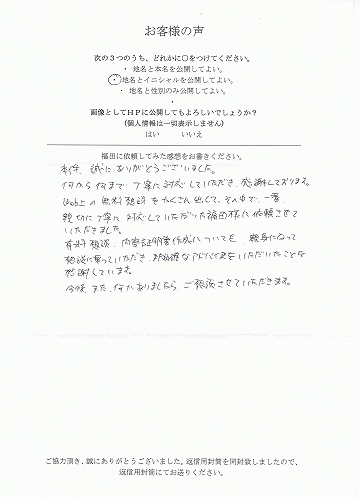 お客様の声
次の3つのうち、どれかに○をつけてください。
・地名と本名を公開してよい。
・地名とイニシャルを公開してよい。
・地名と性別のみ公開してよい。
画像としてHPに公開してもよろしいでしょうか？
（個人情報は一切表示しません）
はい　　いいえ
福田に依頼してみた感想をお書きください。
本件、誠にありがとうございました。
何から何まで丁寧に対応していただき、感謝しております。
Web上の無料相談をたくさん見て、その中で一番、
親切に丁寧に対応していただいた福田様に依頼させて
いただきました。
事前相談、内容証明書作成についても、親身になって
相談に乗っていただき、的確なアドバイスをいただいたことを
感謝しています。
今後、また、何かありましたら、ご相談させていただきます。
ご協力頂き、誠にありがとうございました。返信用封筒を同封致しましたので、
返信用封筒にてお送りください。